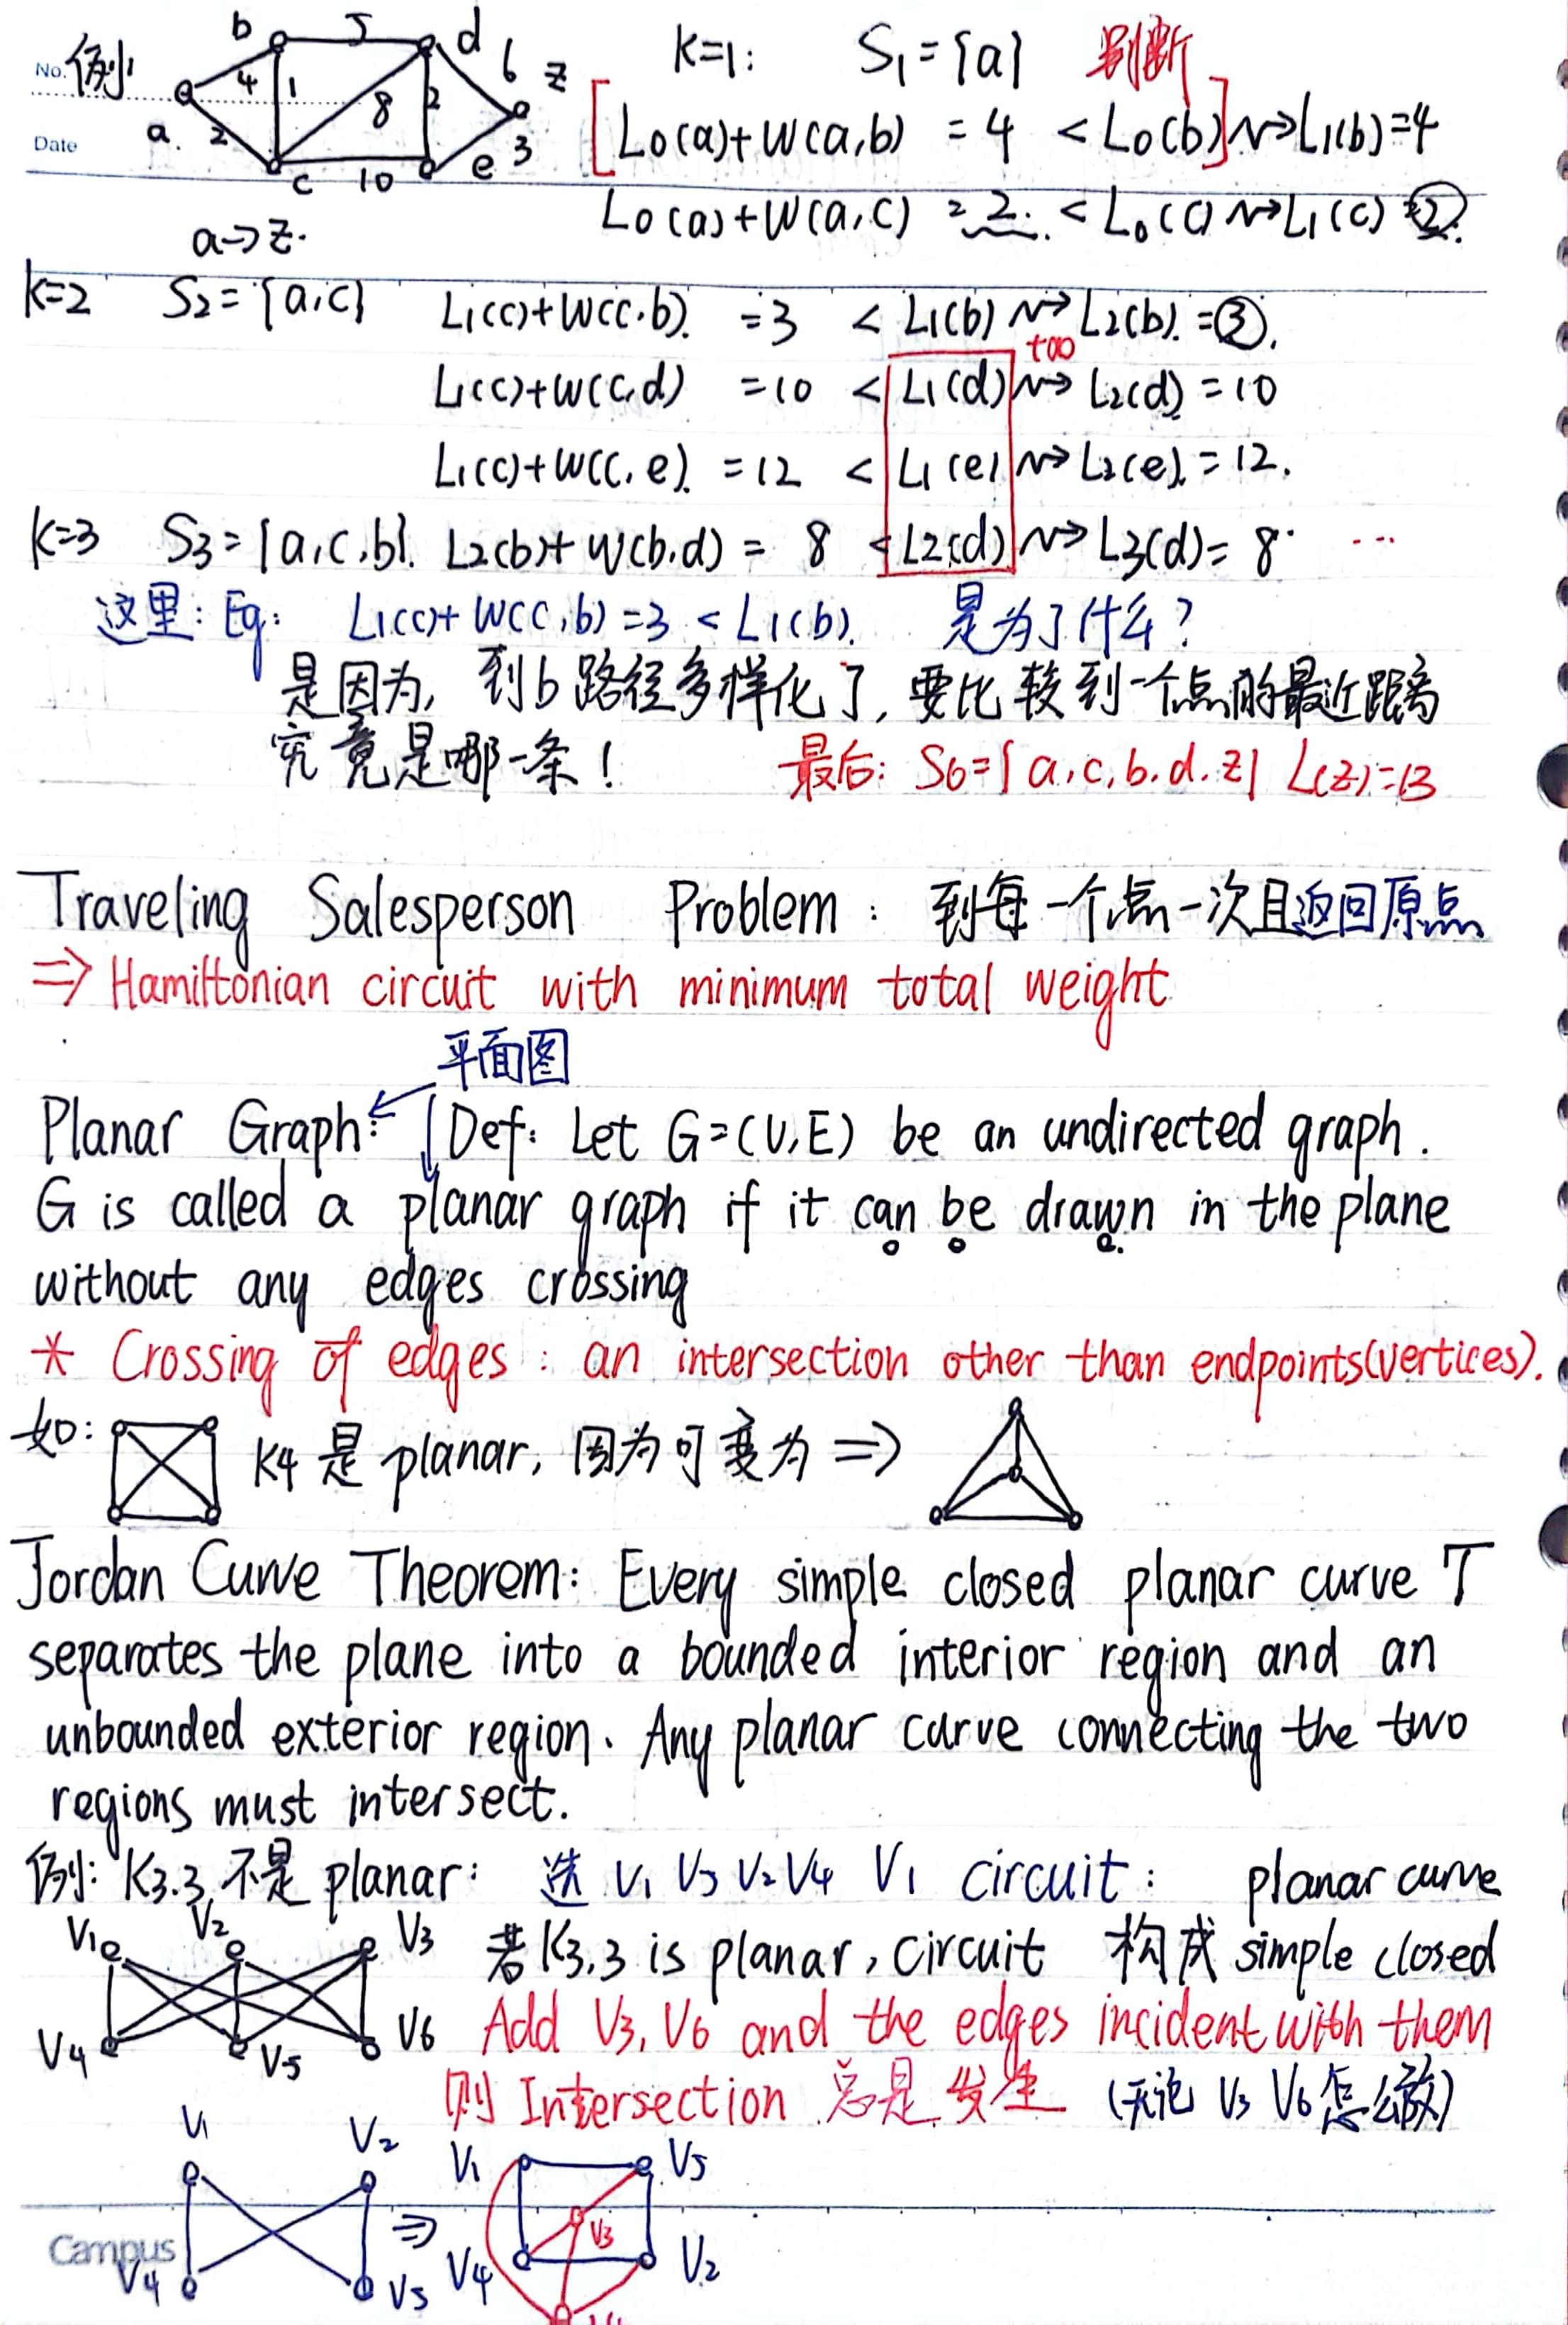 No. 例1
Date
b 5 d 6 z
4 1 8 2
a. 2 c 10 e 3
a→z.
k=1: S₁={a} 判断
[L₀(a)+w(a,b) = 4 < L₀(b)]⇝L₁(b)=4
L₀(a)+w(a,c) = 2. < L₀(c)⇝L₁(c)=②.
k=2 S₂={a,c} L₁(c)+w(c,b). =3 < L₁(b)⇝L₂(b).=③.
+∞
L₁(c)+w(c,d) =10 < L₁(d)⇝L₂(d)=10
L₁(c)+w(c,e). =12 < L₁(e)⇝L₂(e).=12.
k=3 S₃={a,c,b}. L₂(b)+w(b,d) = 8 <L₂(d)⇝L₃(d)=8 ...
这里: Eg: L₁(c)+w(c,b)=3 < L₁(b). 是为了什么?
是因为, 到b路径多样化了, 要比较到一个点的最近距离
究竟是哪一条!
最后: S₆={a,c,b,d,z} L(z)=13
Traveling Salesperson Problem: 到每一个点一次且返回原点
⇒ Hamiltonian circuit with minimum total weight
平面图
Planar Graph: Def: Let G=(V,E) be an undirected graph.
G is called a planar graph if it can be drawn in the plane
without any edges crossing
* Crossing of edges: an intersection other than endpoints(vertices).
如: K4 是 planar, 因为可变为 ⇒
Jordan Curve Theorem: Every simple closed planar curve T
separates the plane into a bounded interior region and an
unbounded exterior region. Any planar curve connecting the two
regions must intersect.
例: K3.3 不是 planar: 选 V₁ V₅ V₂ V₄ V₁ circuit: planar curve
V₁ V₂ V₃ 若K3,3 is planar, circuit 构成 simple closed
V₄ V₅ V₆ Add V₃, V₆ and the edges incident with them
则 Intersection 总是发生 (无论 V₃ V₆ 怎么放)
V₁ V₂ V₁ V₅
⇒ V₃
Campus
V₄ V₅ V₄ V₂